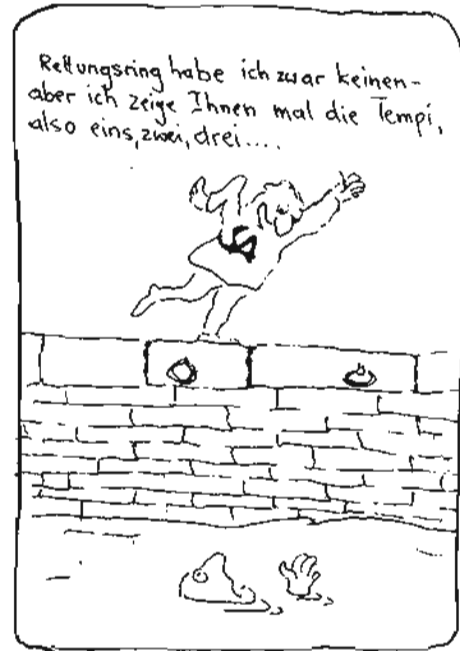 Rettungsring habe ich zwar keinen-
aber ich zeige Ihnen mal die Tempi,
also eins, zwei, drei....